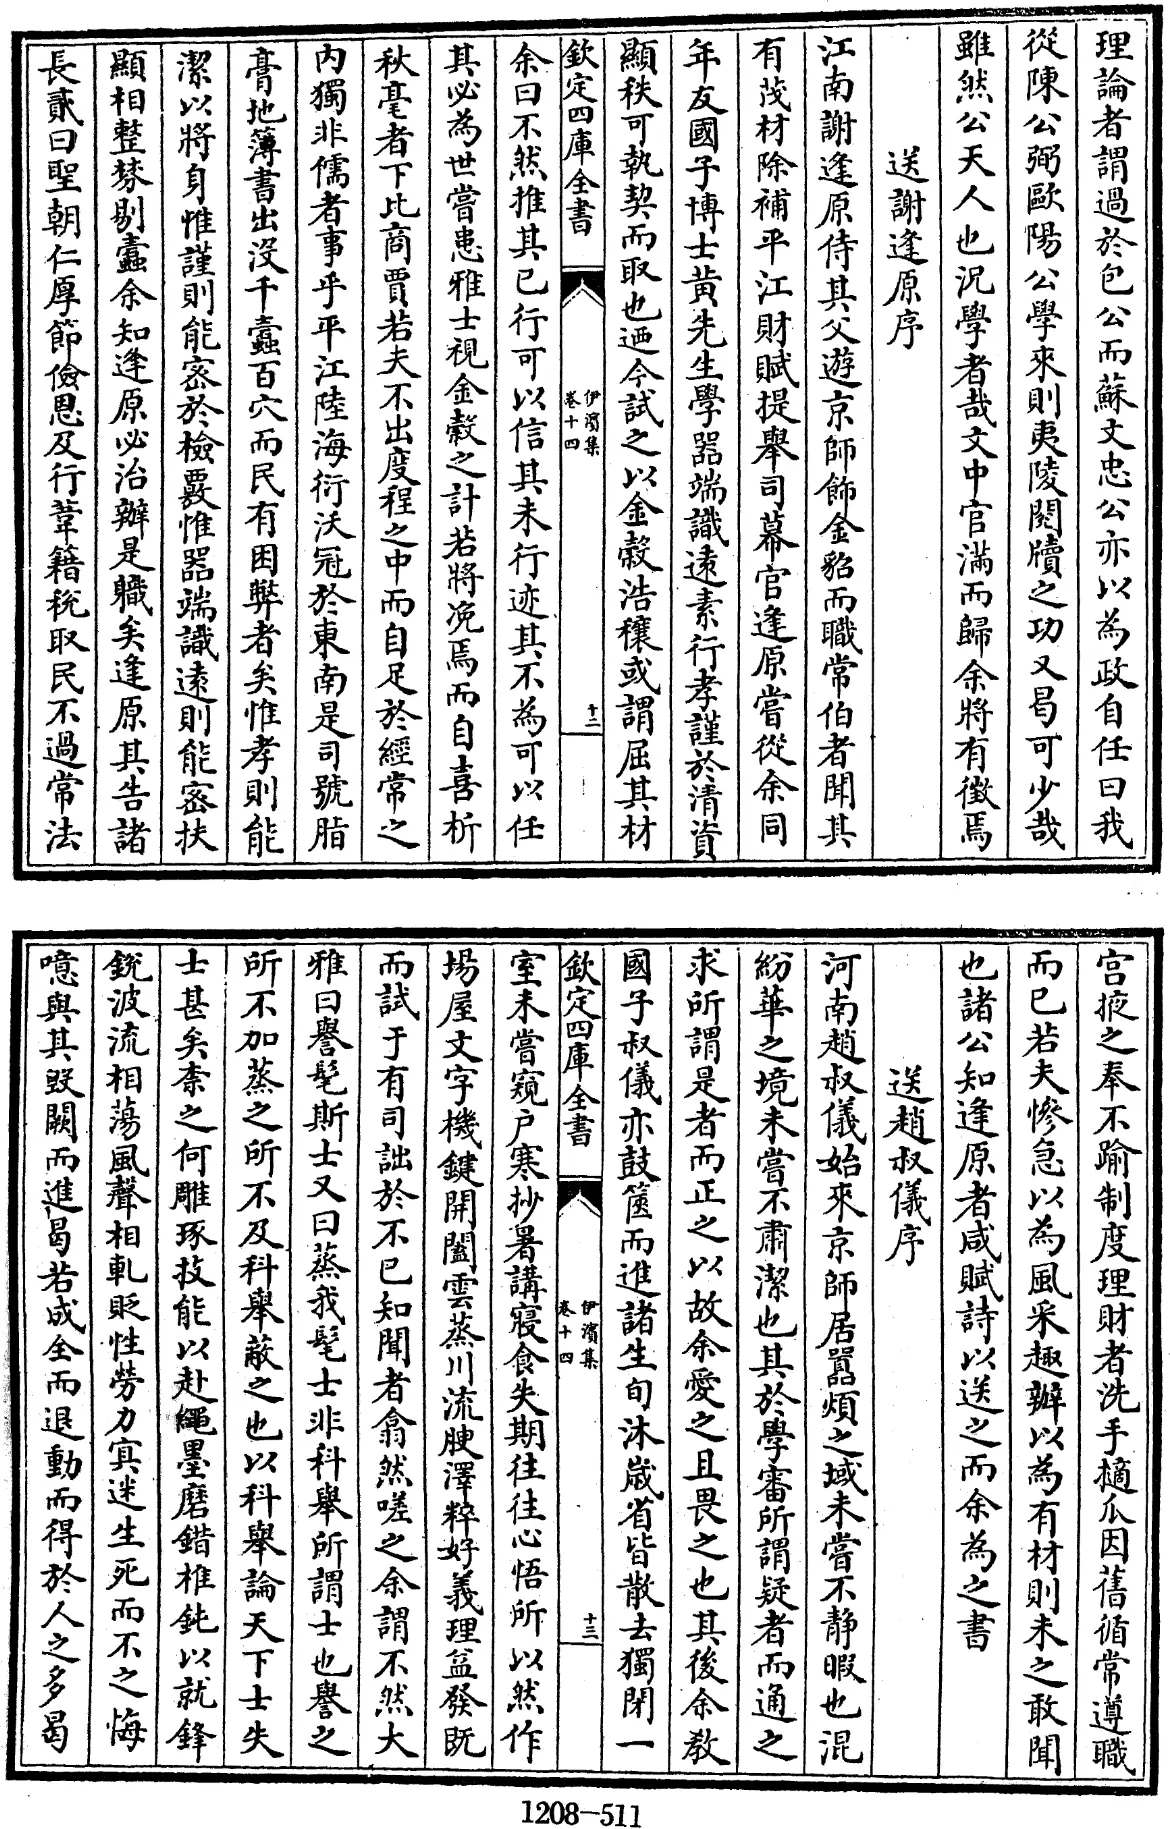 理論者謂過於包公而蘇文忠公亦以為政自任曰我
從陳公弼歐陽公學來則夷陵閱牘之功又曷可少哉
雖然公天人也況學者哉文中官滿而歸余將有徴焉
送謝逢原序
江南謝逢原侍其父遊京師飾金貂而職常伯者聞其
有茂材除補平江財賦提舉司幕官逢原嘗從余同
年友國子博士黄先生學器端識遠素行孝謹於清資
顯秩可執契而取也迺今試之以金穀浩穰或謂屈其材
欽定四庫全書
伊濱集
卷十四
十二
余曰不然推其已行可以信其未行迹其不為可以任
其必為世嘗患雅士視金穀之計若將浼焉而自喜析
秋毫者下比商賈若夫不出度程之中而自足於經常之
内獨非儒者事乎平江陸海衍沃冠於東南是司號脂
膏地簿書出没千蠧百穴而民有困弊者矣惟孝則能
潔以將身惟謹則能宻於檢覈惟器端識遠則能宻扶
顯相整棼剔蠧余知逢原必治辦是職矣逢原其告諸
長貳曰聖朝仁厚節儉恩及行葦籍税取民不過常法
宫掖之奉不踰制度理財者洗手摘瓜因舊循常遵職
而已若夫慘急以為風采趣辦以為有材則未之敢聞
也諸公知逢原者咸賦詩以送之而余為之書
送趙叔儀序
河南趙叔儀始來京師居囂煩之域未嘗不静暇也混
紛華之境未嘗不肅潔也其於學審所謂疑者而通之
求所謂是者而正之以故余愛之且畏之也其後余教
國子叔儀亦鼓篋而進諸生旬沐歲省皆散去獨閉一
欽定四庫全書
伊濱集
卷十四
十三
室未嘗窺户寒抄暑講寢食失期往往心悟所以然作
場屋文字機鍵開闔雲蒸川流腴澤粹好義理益發既
而試于有司詘於不已知聞者翕然嗟之余謂不然大
雅曰譽髦斯士又曰蒸我髦士非科舉所謂士也譽之
所不加蒸之所不及科舉蔽之也以科舉論天下士失
士甚矣柰之何雕琢技能以赴繩墨磨錯椎鈍以就鋒
銳波流相蕩風聲相軋貶性勞力寘迷生死而不之悔
噫與其毀闕而進曷若成全而退動而得於人之多曷
1208-511